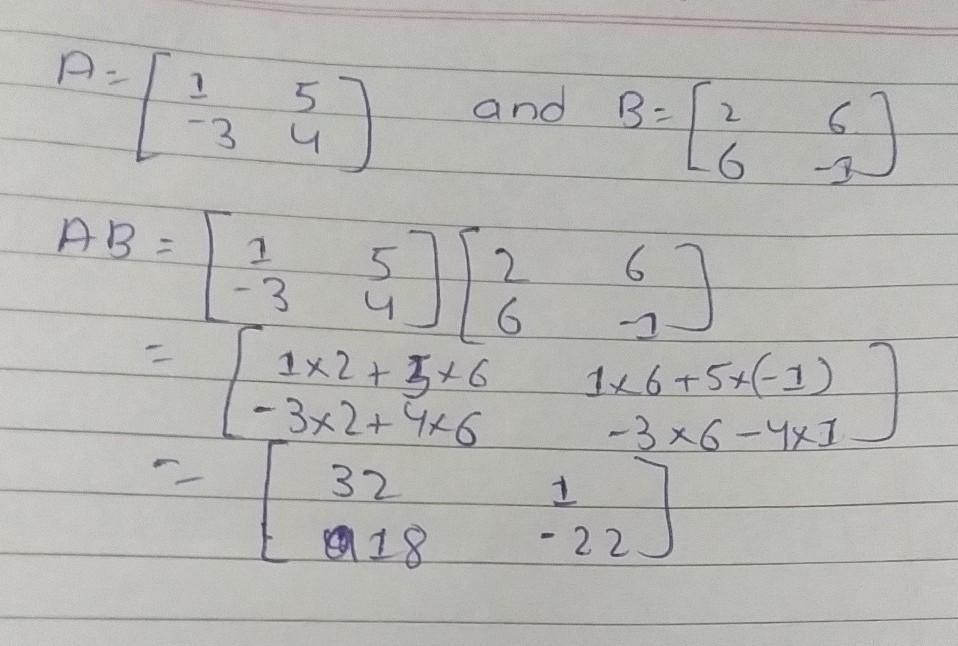 A = [ 1 5 and B = [ 2 6 ]
-3 4 ] 6 -1
AB = [ 1 5 ] [ 2 6 ]
-3 4 6 -1
= [ 1×2 + 5×6 1×6 + 5×(-1) ]
-3×2 + 4×6 -3×6 - 4×1
= [ 32 1 ]
18 -22